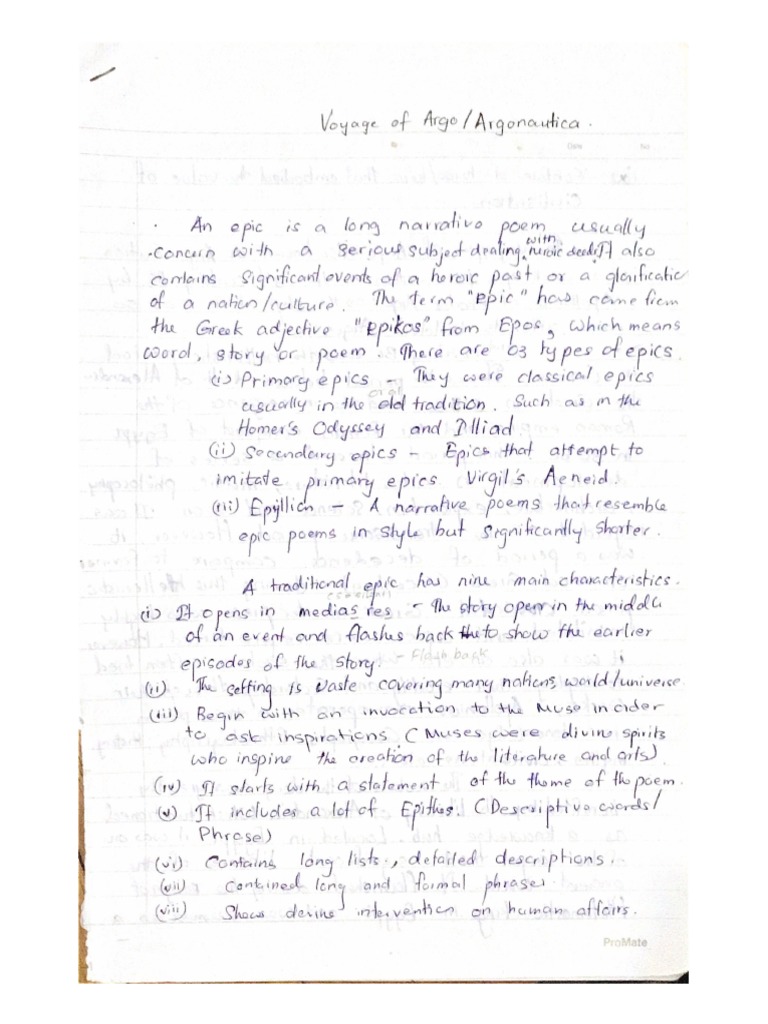 Voyage of Argo/Argonautica.
Date No
· An epic is a long narrative poem usually
·concern with a serious subject dealing with heroic deeds. It also
contains significant events of a heroic past or a glorificatic
of a nation/culture. The term "epic" has come from
the Greek adjective "Epikos" from Epos, which means
word, story or poem. There are 03 types of epics.
(i) Primary epics - They were classical epics
usually in the old oral tradition. Such as in the
Homer's Odyssey and Illiad.
(ii) Secondary epics - Epics that attempt to
imitate primary epics Virgil's Aeneid.
(iii) Epyllion - A narrative poems that resemble
epic poems in style but significantly shorter.
A traditional epic has nine main characteristics.
(i) It opens in medias res - The story open in the middle
of an event and flashes back to show the earlier
episodes of the story. - Flash back
(ii) The setting is vaste covering many nations, world/universe
(iii) Begin with an invocation to the Muse in order
to ask inspirations. (Muses were divine spirits
who inspine the creation of the literature and arts).
(iv) It starts with a statement of the theme of the poem.
(v) It includes a lot of Epithes. (Descriptive words/
Phrase)
(vi) Contains long lists, detailed descriptions.
(vii) contained long and formal phrases
(viii) Shows devine intervention on human affairs.
ProMate